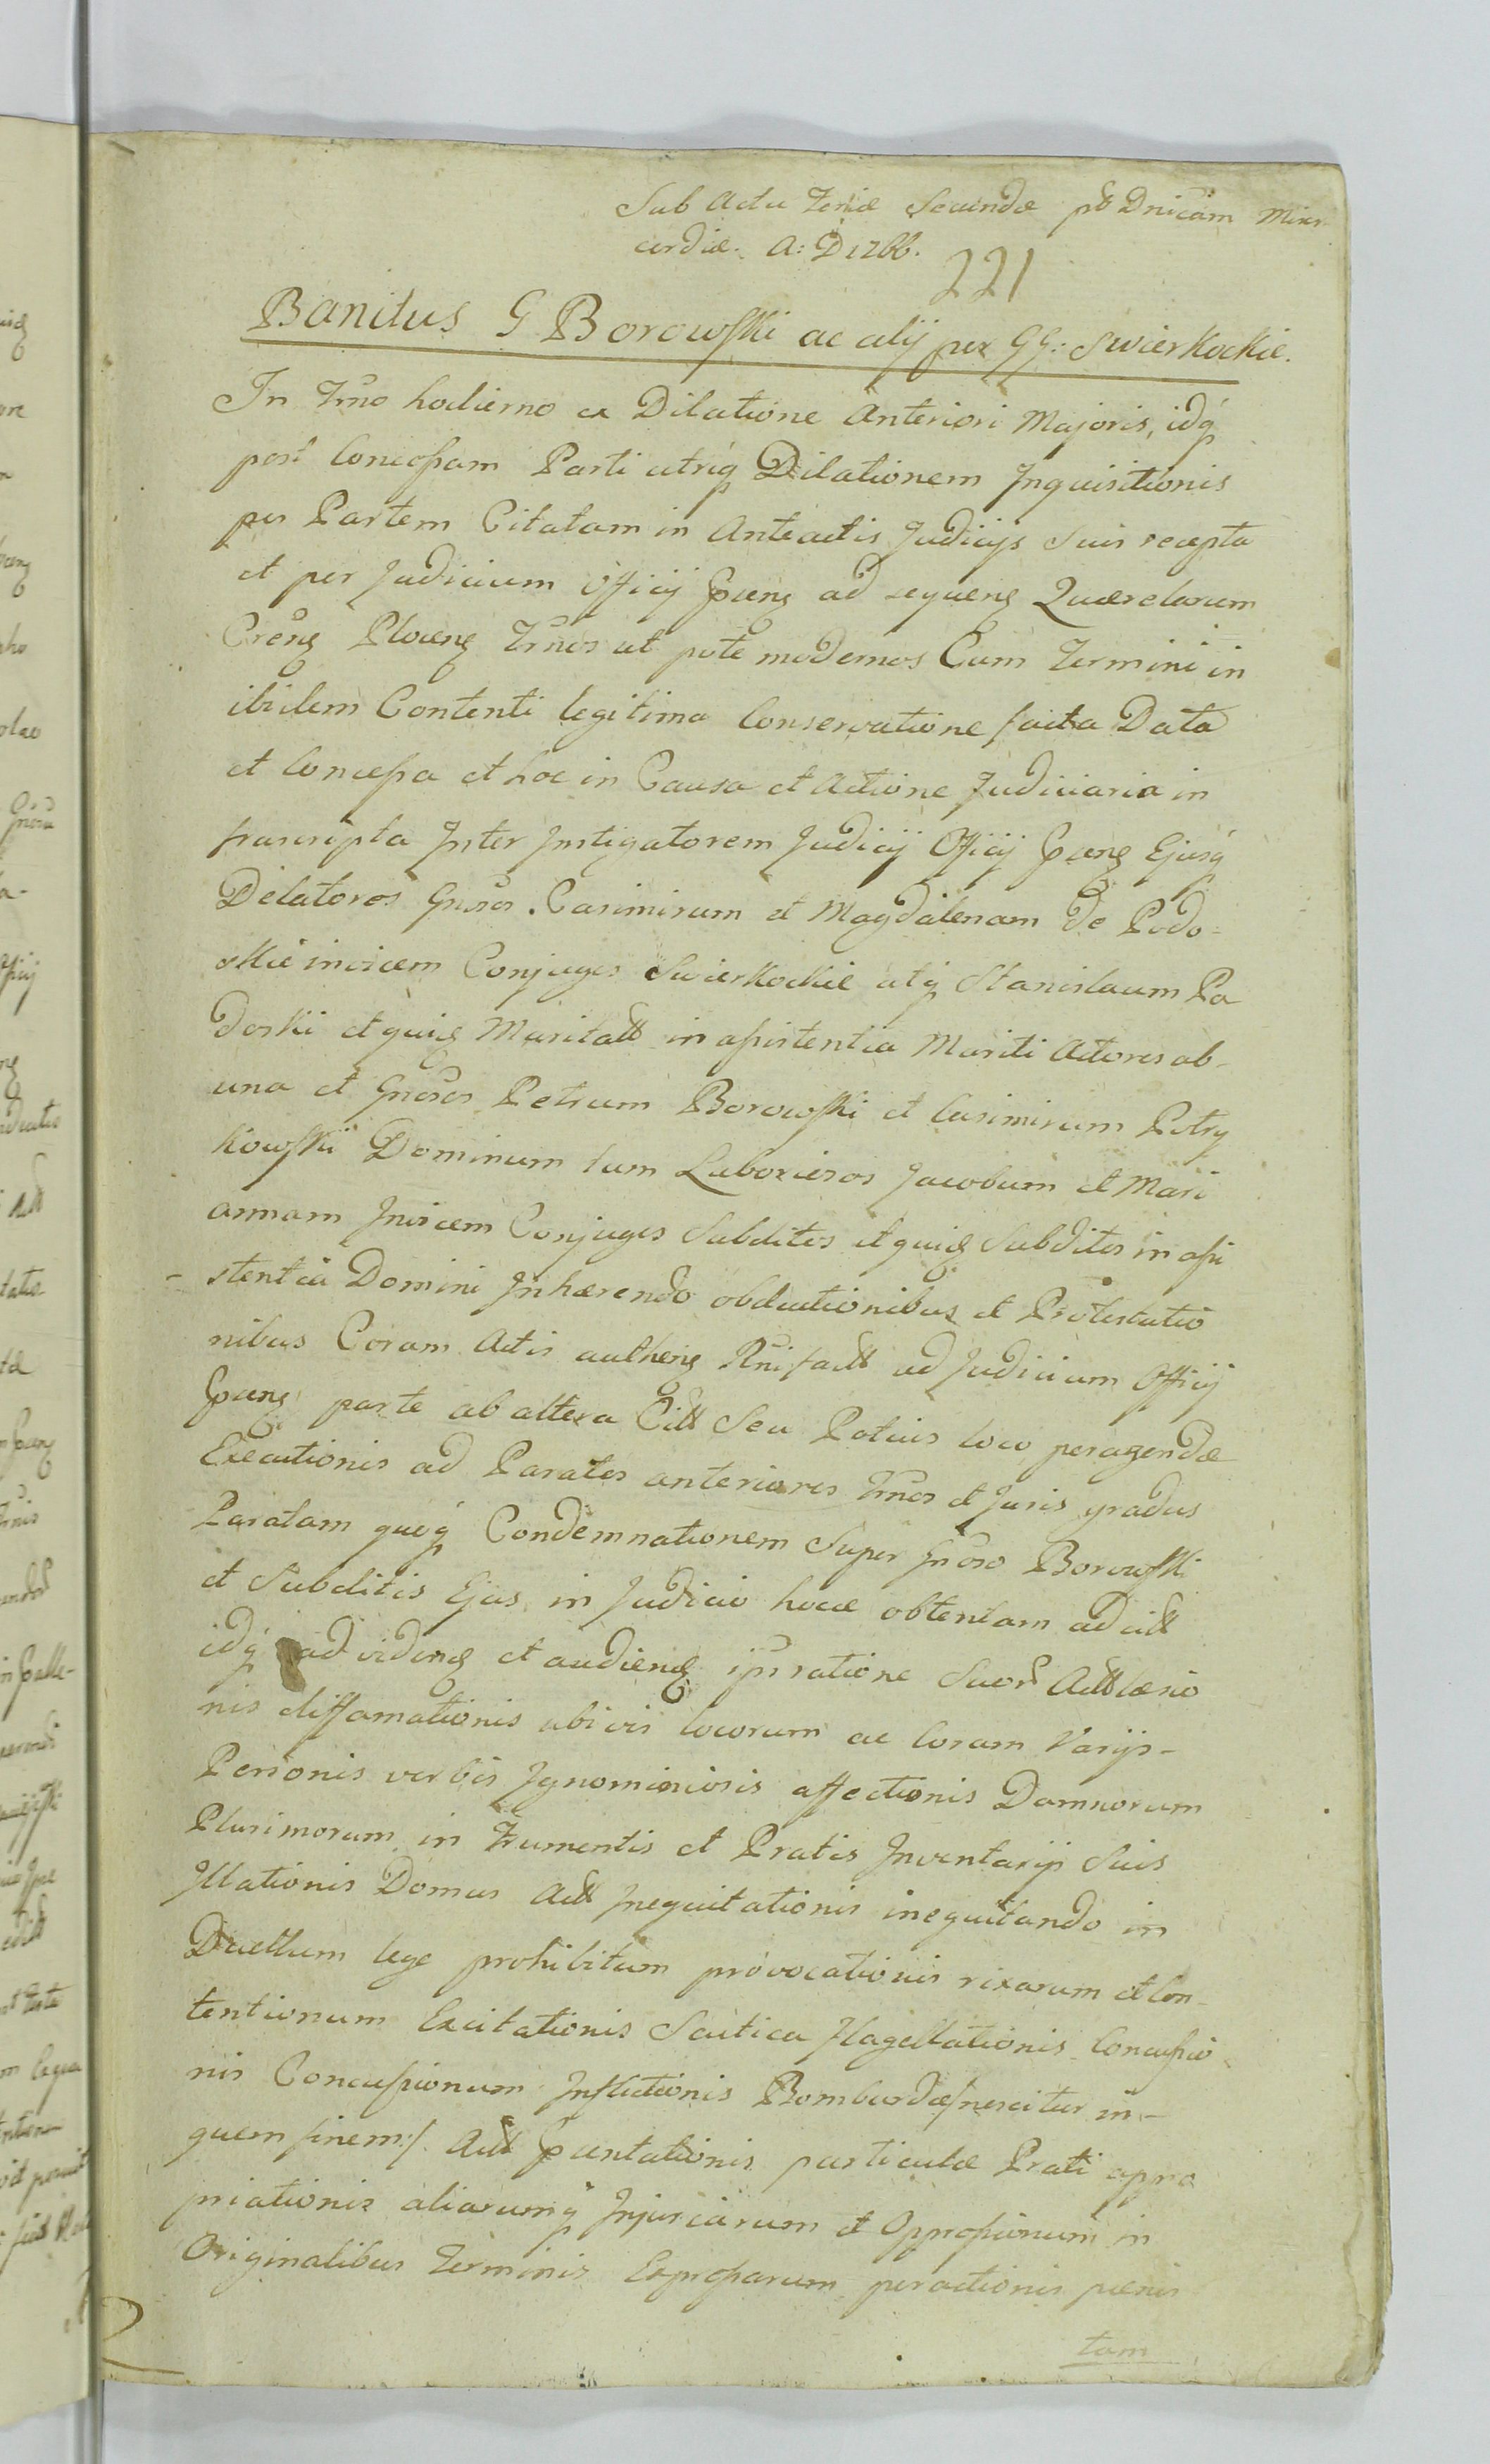 Sub Actu Feriæ Secundæ pt Dnicam Miser
cordiæ. A: D 1766.
221
Banitus G Borowski ac alij per GG: Swierkockie.
In Trno hodierno ex Dilatione Anteriori Majoris, idq
post Concessam Parti utriq Dilationem Inquisitionis
per Partem Citatam in Anteactis Judicijs suis recepta
et per Judicium Officij ad sequens Quærelarum
Crens Trnos ut pote modernos Cum Termini in
ibidem Contenti legitima Conservatione facta Data
et Concessa et hoc in Causa et Actione Judiciaria in
frascripta Inter Instigatorem Judicij Officij Ejusq
Delatores Gnosos Casimirum et Magdalenam de Podo-
skie invicem Conjuges Swierkockie atq Stanislaum Po
doski et quidem Maritatt in assistentia Mariti Actores ab-
una et Gnosos Petrum Borowski et Casimirum Potry
kowski Dominum tum Laboriosos Jacobum et Mari
annam Invicem Conjuges Subditos et quidem Subditos in assi
stentia Domini Inhærendo obductionibus et Protestatio
nibus Coram Actis authens ad Judicium Officij
parte ab altera Citt Seu Potius loco peragendæ
Executionis ad Paratos anteriores Trnos et Juris gradus
Paratam quoq Condemnationem Super Gnoso Borowski
et Subditis Ejus in Judicio hocce obtentam ad
idq ad videndum et audiendum ratione Suor Actt læsio
nis diffamationis ubivis locorum ac Coram Varijs-
Personis verbis Ignominiosis affectionis Damnorum
Plurimorum in Frumentis et Pratis Inventarijs Suis
Illationis Domus Actt Inequitationis inequitando in
Duellum lege prohibitum provocationis rixarum et Con-
tentionum Excitationis Scutica flagellationis Concussio
nis Concussionum Inflictionis Bombardæ/:nescitur in-
quem finem:/. Actt particulæ Prati appro
priationis aliarumq Injuriarum et Oppressionum in
Originalibus Terminis Expressarum peractionis pænis
tam